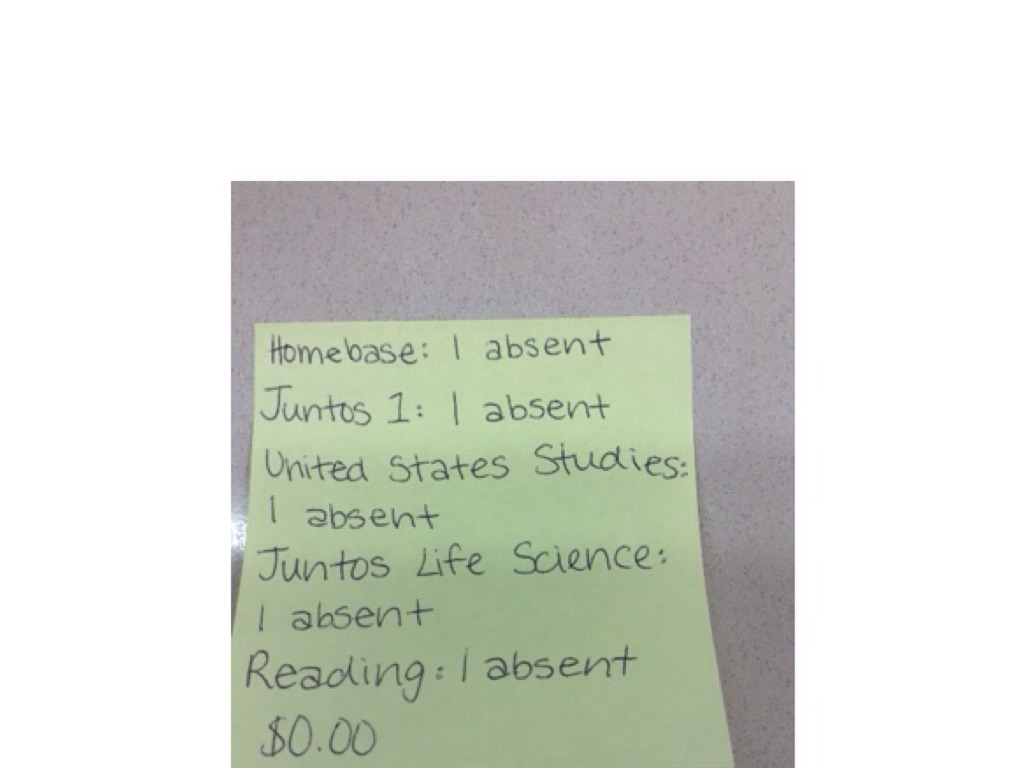 Homebase: 1 absent
Juntos 1: 1 absent
United States Studies:
1 absent
Juntos Life Science:
1 absent
Reading: 1 absent
$0.00